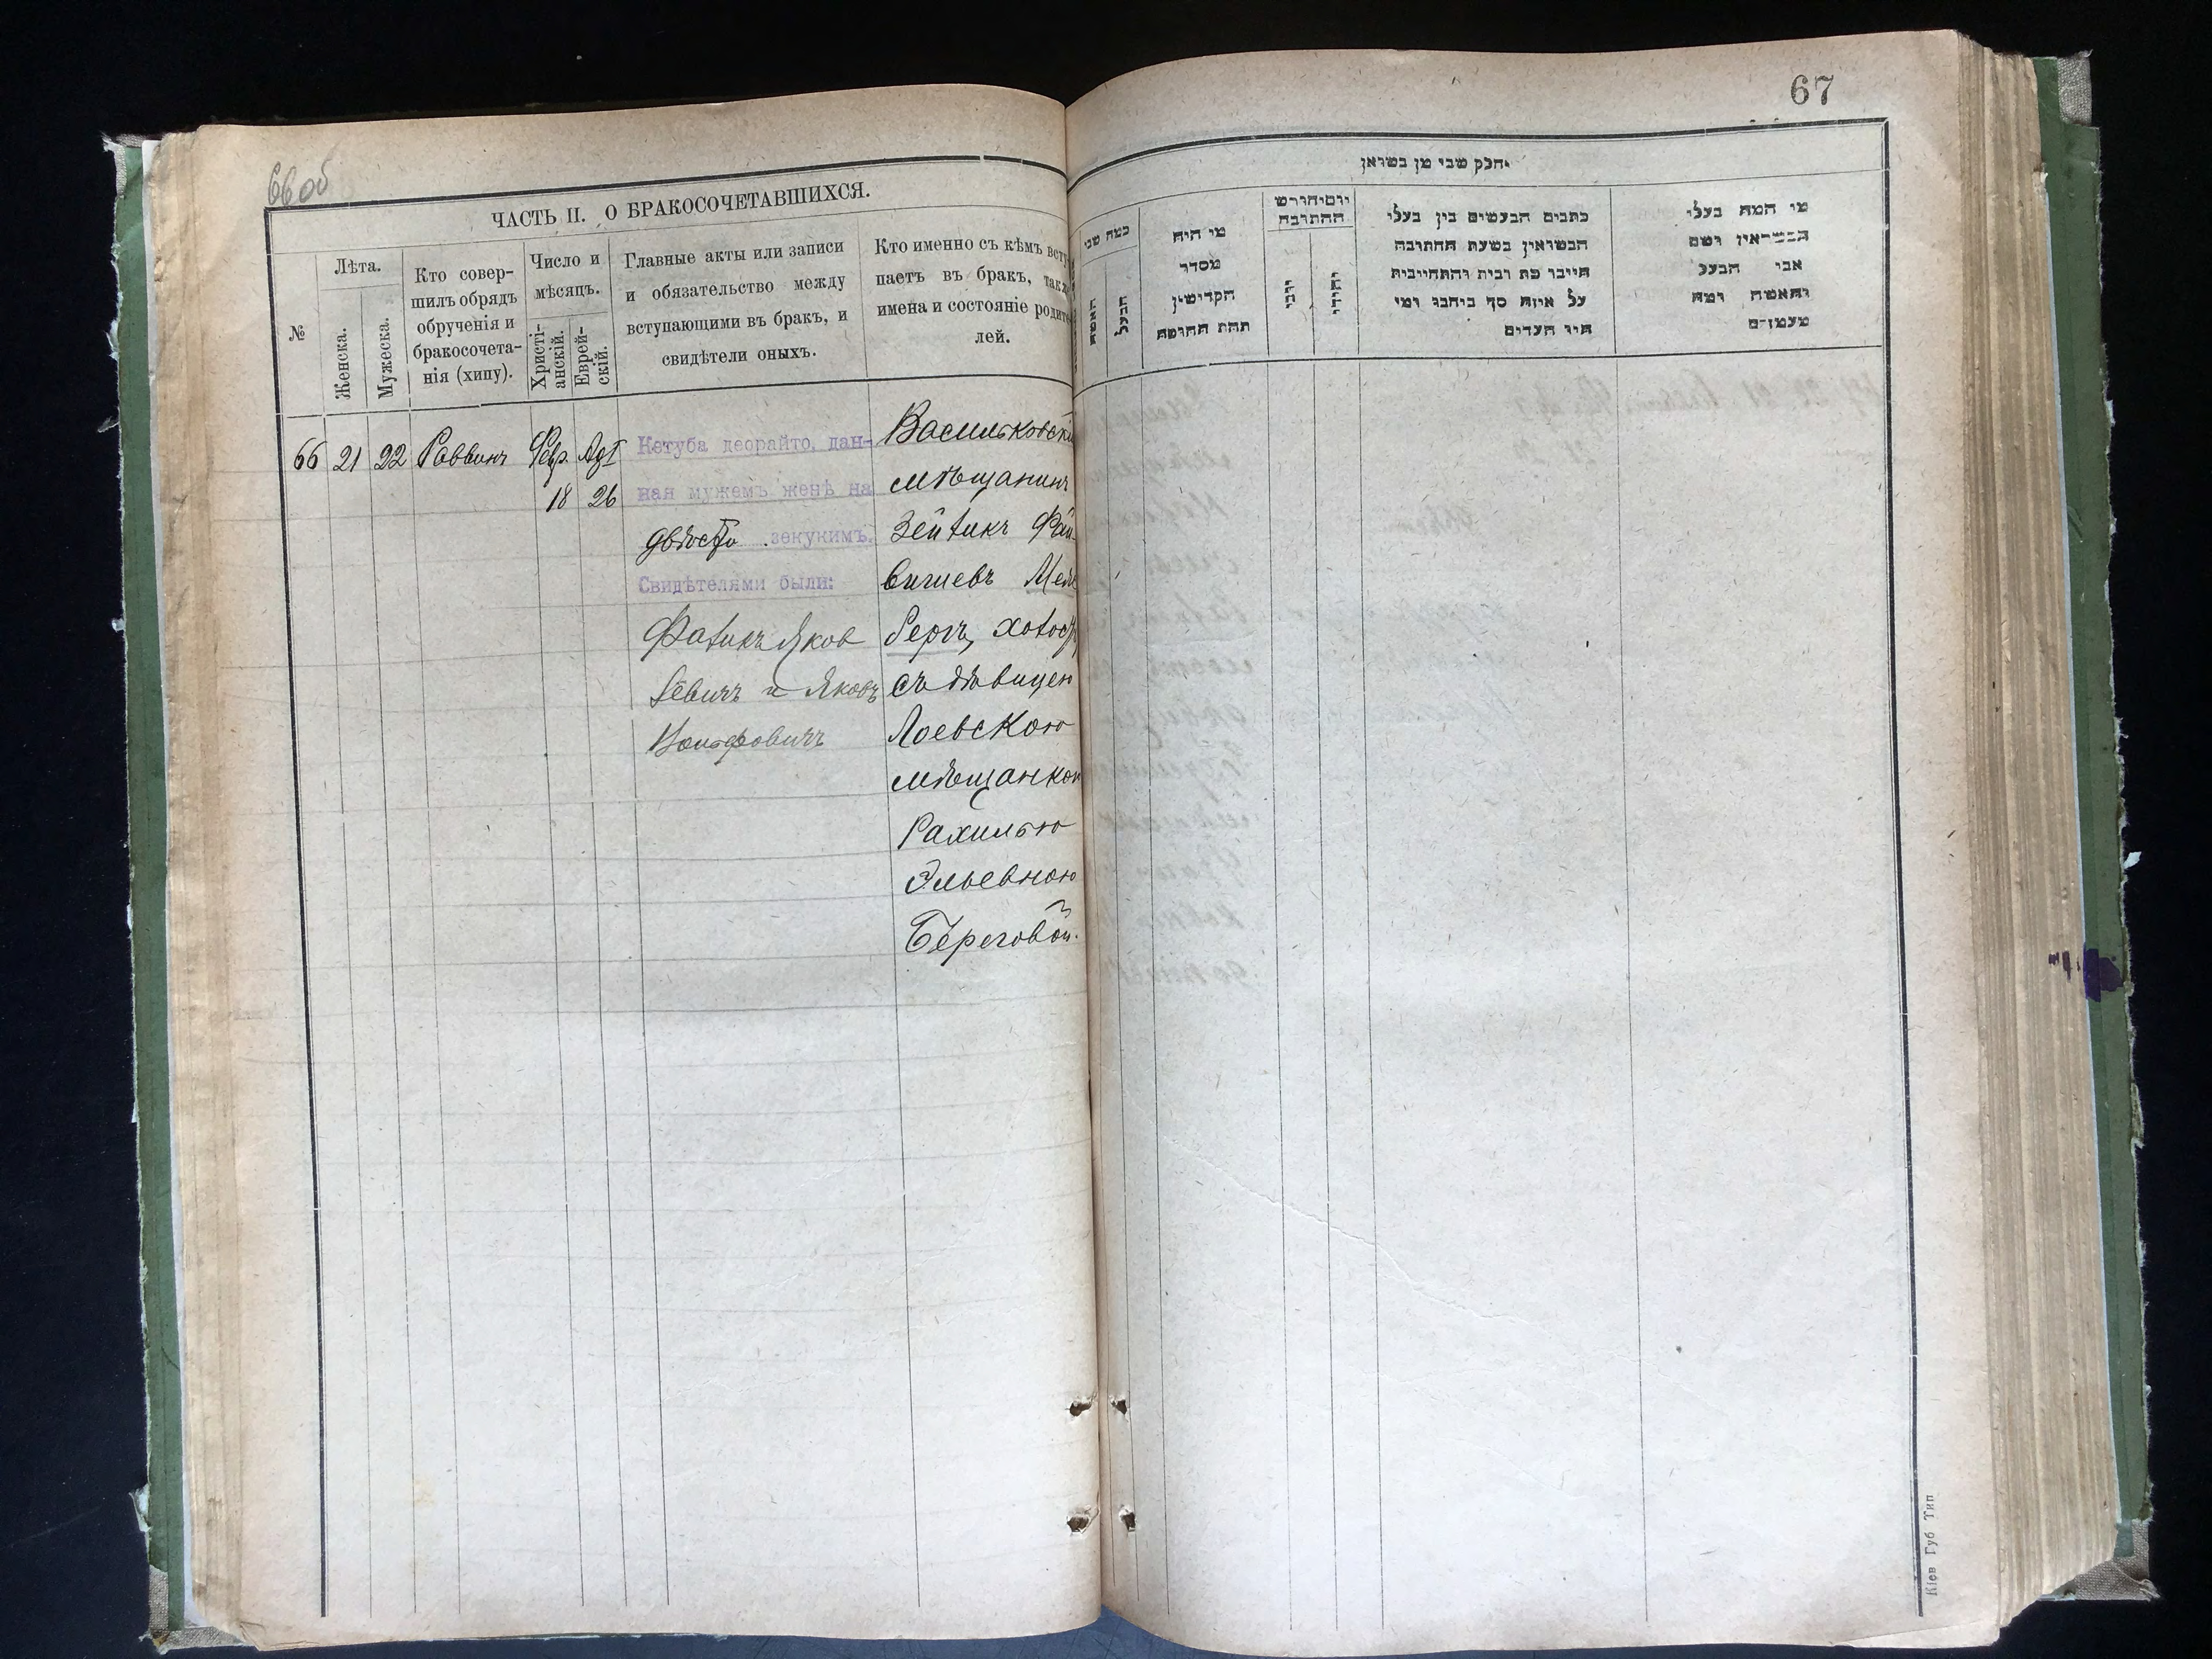 66 об
67
ЧАСТЬ II. О БРАКОСОЧЕТАВШИХСЯ.
№
Лѣта.
Женска.
Мужеска.
Кто совер-
шилъ обрядъ
обрученія и
бракосочета-
нія (хипу).
Число и
мѣсяцъ.
Христі-
анскій.
Еврей-
скій.
Главные акты или записи
и обязательство между
вступающими въ бракъ, и
свидѣтели оныхъ.
Кто именно съ кѣмъ всту
паетъ въ бракъ, также
имена и состояніе родите
лей.
66 21 22 Раввинъ Февр. Ад I
18 26
Кетуба деорайто, дан-
ная мужемъ женѣ на
двѣсти зекукимъ.
Свидѣтелями были:
Фаликъ Яков
левичъ и Яковъ
Васильковскій
мѣщанинъ
Зейликъ Фай-
вишевъ Мейл
бергъ, холост
съ дѣвицею
Лоевскою
мѣщанкою
Рахилью
Эльевною
Береговой.
חלק שני מן נשואין
כמה שני
האשה
הבעל
מי היה
מסדר
הקדושין
תחת החופה
יום וחודש
החתונה
יהודי
כתבים הנעשים בין בעלי
הנשואין בשעת החתונה
חייבו פת ובית והתחייבות
על איזה סך ביניהם ומי
היו העדים
מי המה בעלי
הנשואין ושם
אבי הבעל
והאשה ומה
מעמדם
Кіев Губ Тип